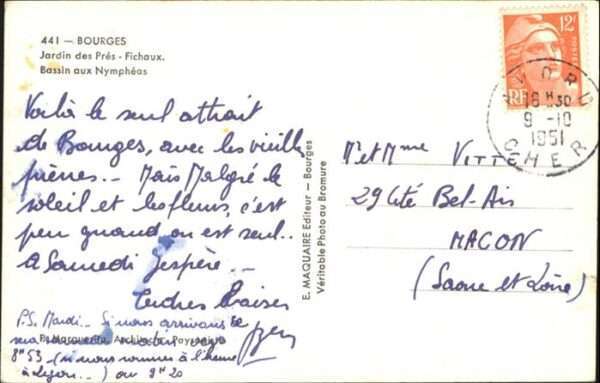 441 — BOURGES
Jardin des Prés - Fichaux.
Bassin aux Nymphéas
Voilà le seul attrait
de Bourges, avec les vieilles
pierres... Mais Malgré le
soleil et les fleurs, c'est
peu quand on est seul..
A Samedi J'espère...
Tendres Baisers
P.S. Mardi... Si nous arrivans ce
8H53 (si nous sommes à l'heure
à Lyon...) ou 9H20
P. Marguerita, Architecte Paysagiste
E. MAQUAIRE Editeur — Bourges
Véritable Photo au Bromure
12F
POSTES
RF
AVORD
18H30
9-10
1951
CHER
Mr et Mme VITTE
29 Cité Bel-Air
MACON
(Saone et Loire)